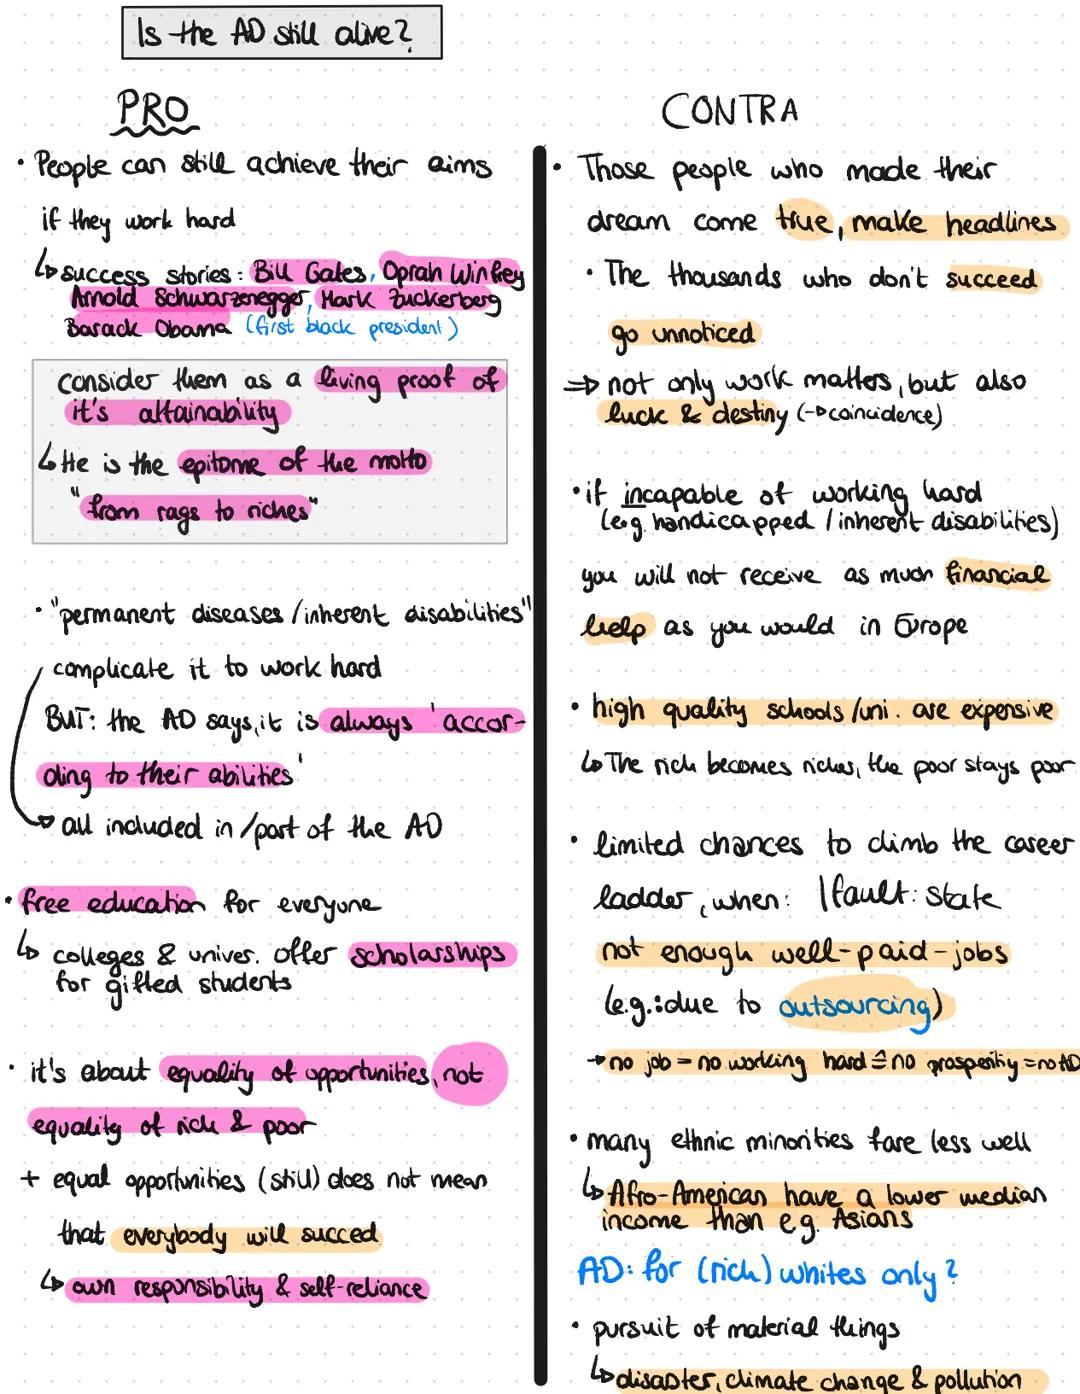 Is the AD still alive?
PRO
· People can still achieve their aims
if they work hard
↳ success stories: Bill Gates, Oprah Winfrey
Arnold Schwarzenegger, Mark Zuckerberg
Barack Obama (first black president)
consider them as a living proof of
it's attainability
↳ He is the epitome of the motto
"from rags to riches"
· "permanent diseases / inherent disabilities"
complicate it to work hard
BUT: the AD says, it is always 'accor-
ding to their abilities'
→ all included in / part of the AD
· free education for everyone
↳ colleges & univer. offer scholarships
for gifted students
· it's about equality of opportunities, not
equality of rich & poor
+ equal opportunities (still) does not mean
that everybody will succed
↳ own responsibility & self-reliance
CONTRA
· Those people who made their
dream come true, make headlines
· The thousands who don't succeed
go unnoticed
⇒ not only work matters, but also
luck & destiny (→ coincidence)
· if incapable of working hard
(e.g. handicapped / inherent disabilities)
you will not receive as much financial
help as you would in Europe
· high quality schools / uni. are expensive
↳ The rich becomes richer, the poor stays poor
· limited chances to climb the career
ladder, when: | fault: state
not enough well-paid-jobs
(e.g.: due to outsourcing)
→ no job = no working hard ≙ no prosperity = no AD
· many ethnic minorities fare less well
↳ Afro-American have a lower median
income than e.g. Asians
AD: for (rich) whites only?
· pursuit of material things
↳ disaster, climate change & pollution